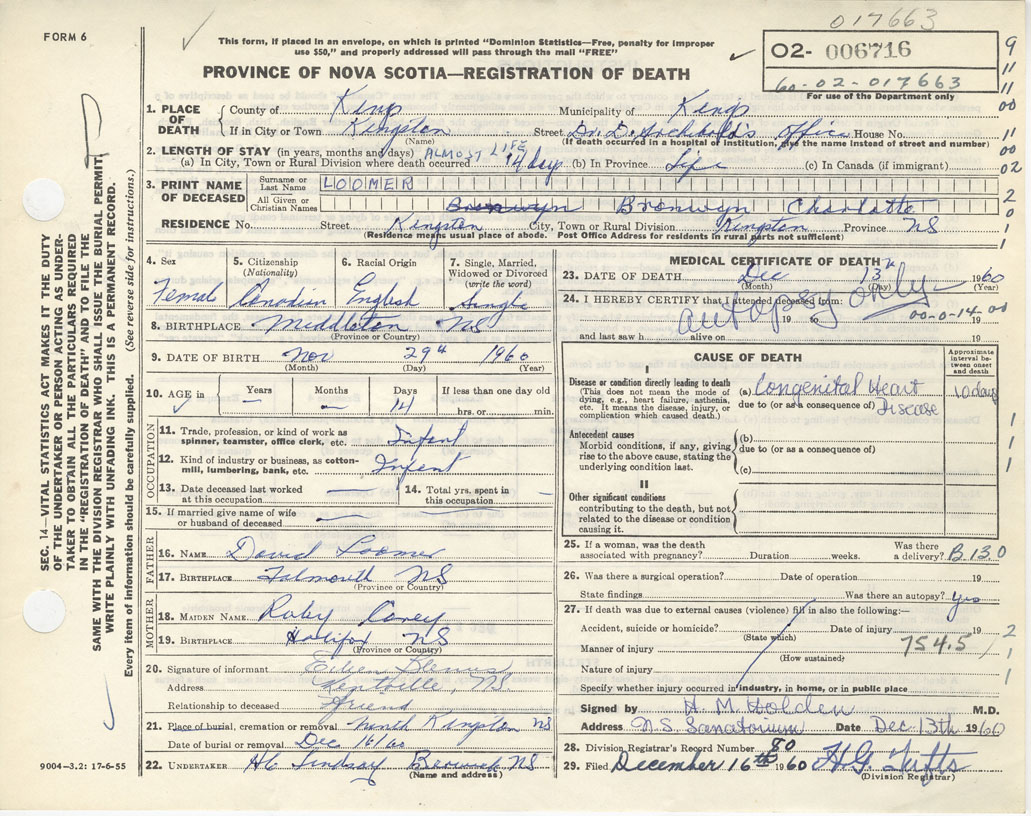 017663
FORM 6
This form, if placed in an envelope, on which is printed "Dominion Statistics—Free, penalty for improper
use $50," and properly addressed will pass through the mail "FREE"
PROVINCE OF NOVA SCOTIA—REGISTRATION OF DEATH
02- 006716
60-02-017663
For use of the Department only
9
11
11
00
11
00
02
2
0
1
1
1. PLACE OF DEATH
County of Kings Municipality of Kings
If in City or Town Kingston Street Dr. D. Archbold's Office House No.
(Name) (If death occurred in a hospital or institution, give the name instead of street and number)
2. LENGTH OF STAY (in years, months and days) ALMOST LIFE
(a) In City, Town or Rural Division where death occurred 14 days (b) In Province Life (c) In Canada (if immigrant)
3. PRINT NAME OF DECEASED
Surname or Last Name LOOMER
All Given or Christian Names Bronwyn Bronwyn Charlotte
RESIDENCE No. Street Kingston City, Town or Rural Division Kingston Province NS
(Residence means usual place of abode. Post Office Address for residents in rural parts not sufficient)
4. Sex Femal
5. Citizenship (Nationality) Canadian
6. Racial Origin English
7. Single, Married, Widowed or Divorced (write the word) Single
8. BIRTHPLACE Middleton NS
(Province or Country)
9. DATE OF BIRTH Nov 29th 1960
(Month) (Day) (Year)
10. AGE in Years — Months — Days 14 If less than one day old
hrs. or min.
OCCUPATION
11. Trade, profession or kind of work as spinner, teamster, office clerk, etc. Infent
12. Kind of industry or business, as cotton-mill, lumbering, bank, etc. Infent
13. Date deceased last worked at this occupation —
14. Total yrs. spent in this occupation —
15. If married give name of wife or husband of deceased —
FATHER
16. NAME David Loomer
17. BIRTHPLACE Falmouth NS
(Province or Country)
MOTHER
18. MAIDEN NAME Ruby
19. BIRTHPLACE Halifax NS
(Province or Country)
20. Signature of informant Eileen
Address Kentville, N.S.
Relationship to deceased friend
21. Place of burial, cremation or removal North Kingston NS
Date of burial or removal Dec 16/60
22. UNDERTAKER HC Lindsay Berwick NS
(Name and address)
9004-3.2: 17-6-55
SEC. 14—VITAL STATISTICS ACT MAKES IT THE DUTY
OF THE UNDERTAKER OR PERSON ACTING AS UNDER-
TAKER TO OBTAIN ALL THE PARTICULARS REQUIRED
IN THE "REGISTRATION OF DEATH" AND TO FILE THE
SAME WITH THE DIVISION REGISTRAR WHO SHALL ISSUE THE BURIAL PERMIT.
WRITE PLAINLY WITH UNFADING INK. THIS IS A PERMANENT RECORD.
Every item of information should be carefully supplied. (See reverse side for instructions.)
MEDICAL CERTIFICATE OF DEATH
23. DATE OF DEATH Dec 13th 1960
(Month) (Day) (Year)
24. I HEREBY CERTIFY that I attended deceased from:
autopsy only
19 to 19
00-0-14-00
and last saw h alive on 19
CAUSE OF DEATH
Approximate interval between onset and death
I
Disease or condition directly leading to death
(This does not mean the mode of dying, e.g., heart failure, asthenia, etc. It means the disease, injury, or complication which caused death.)
(a) Congenital Heart 10 days
due to (or as a consequence of) Disease
Antecedent causes
Morbid conditions, if any, giving rise to the above cause, stating the underlying condition last.
(b)
due to (or as a consequence of)
(c)
II
Other significant conditions
contributing to the death, but not related to the disease or condition causing it.
1
1
1
1
25. If a woman, was the death associated with pregnancy? Duration weeks. Was there a delivery? B 130
26. Was there a surgical operation? Date of operation 19
State findings Was there an autopsy? Yes
27. If death was due to external causes (violence) fill in also the following:—
Accident, suicide or homicide? Date of injury 19 2
(State which)
Manner of injury 754.5 1
(How sustained)
Nature of injury 1
Specify whether injury occurred in industry, in home, or in public place
Signed by H. M. Holden M.D.
Address N.S. Sanatorium Date Dec 13th 1960
28. Division Registrar's Record Number 80
29. Filed December 16th 1960 H.G. Tufts
(Division Registrar)